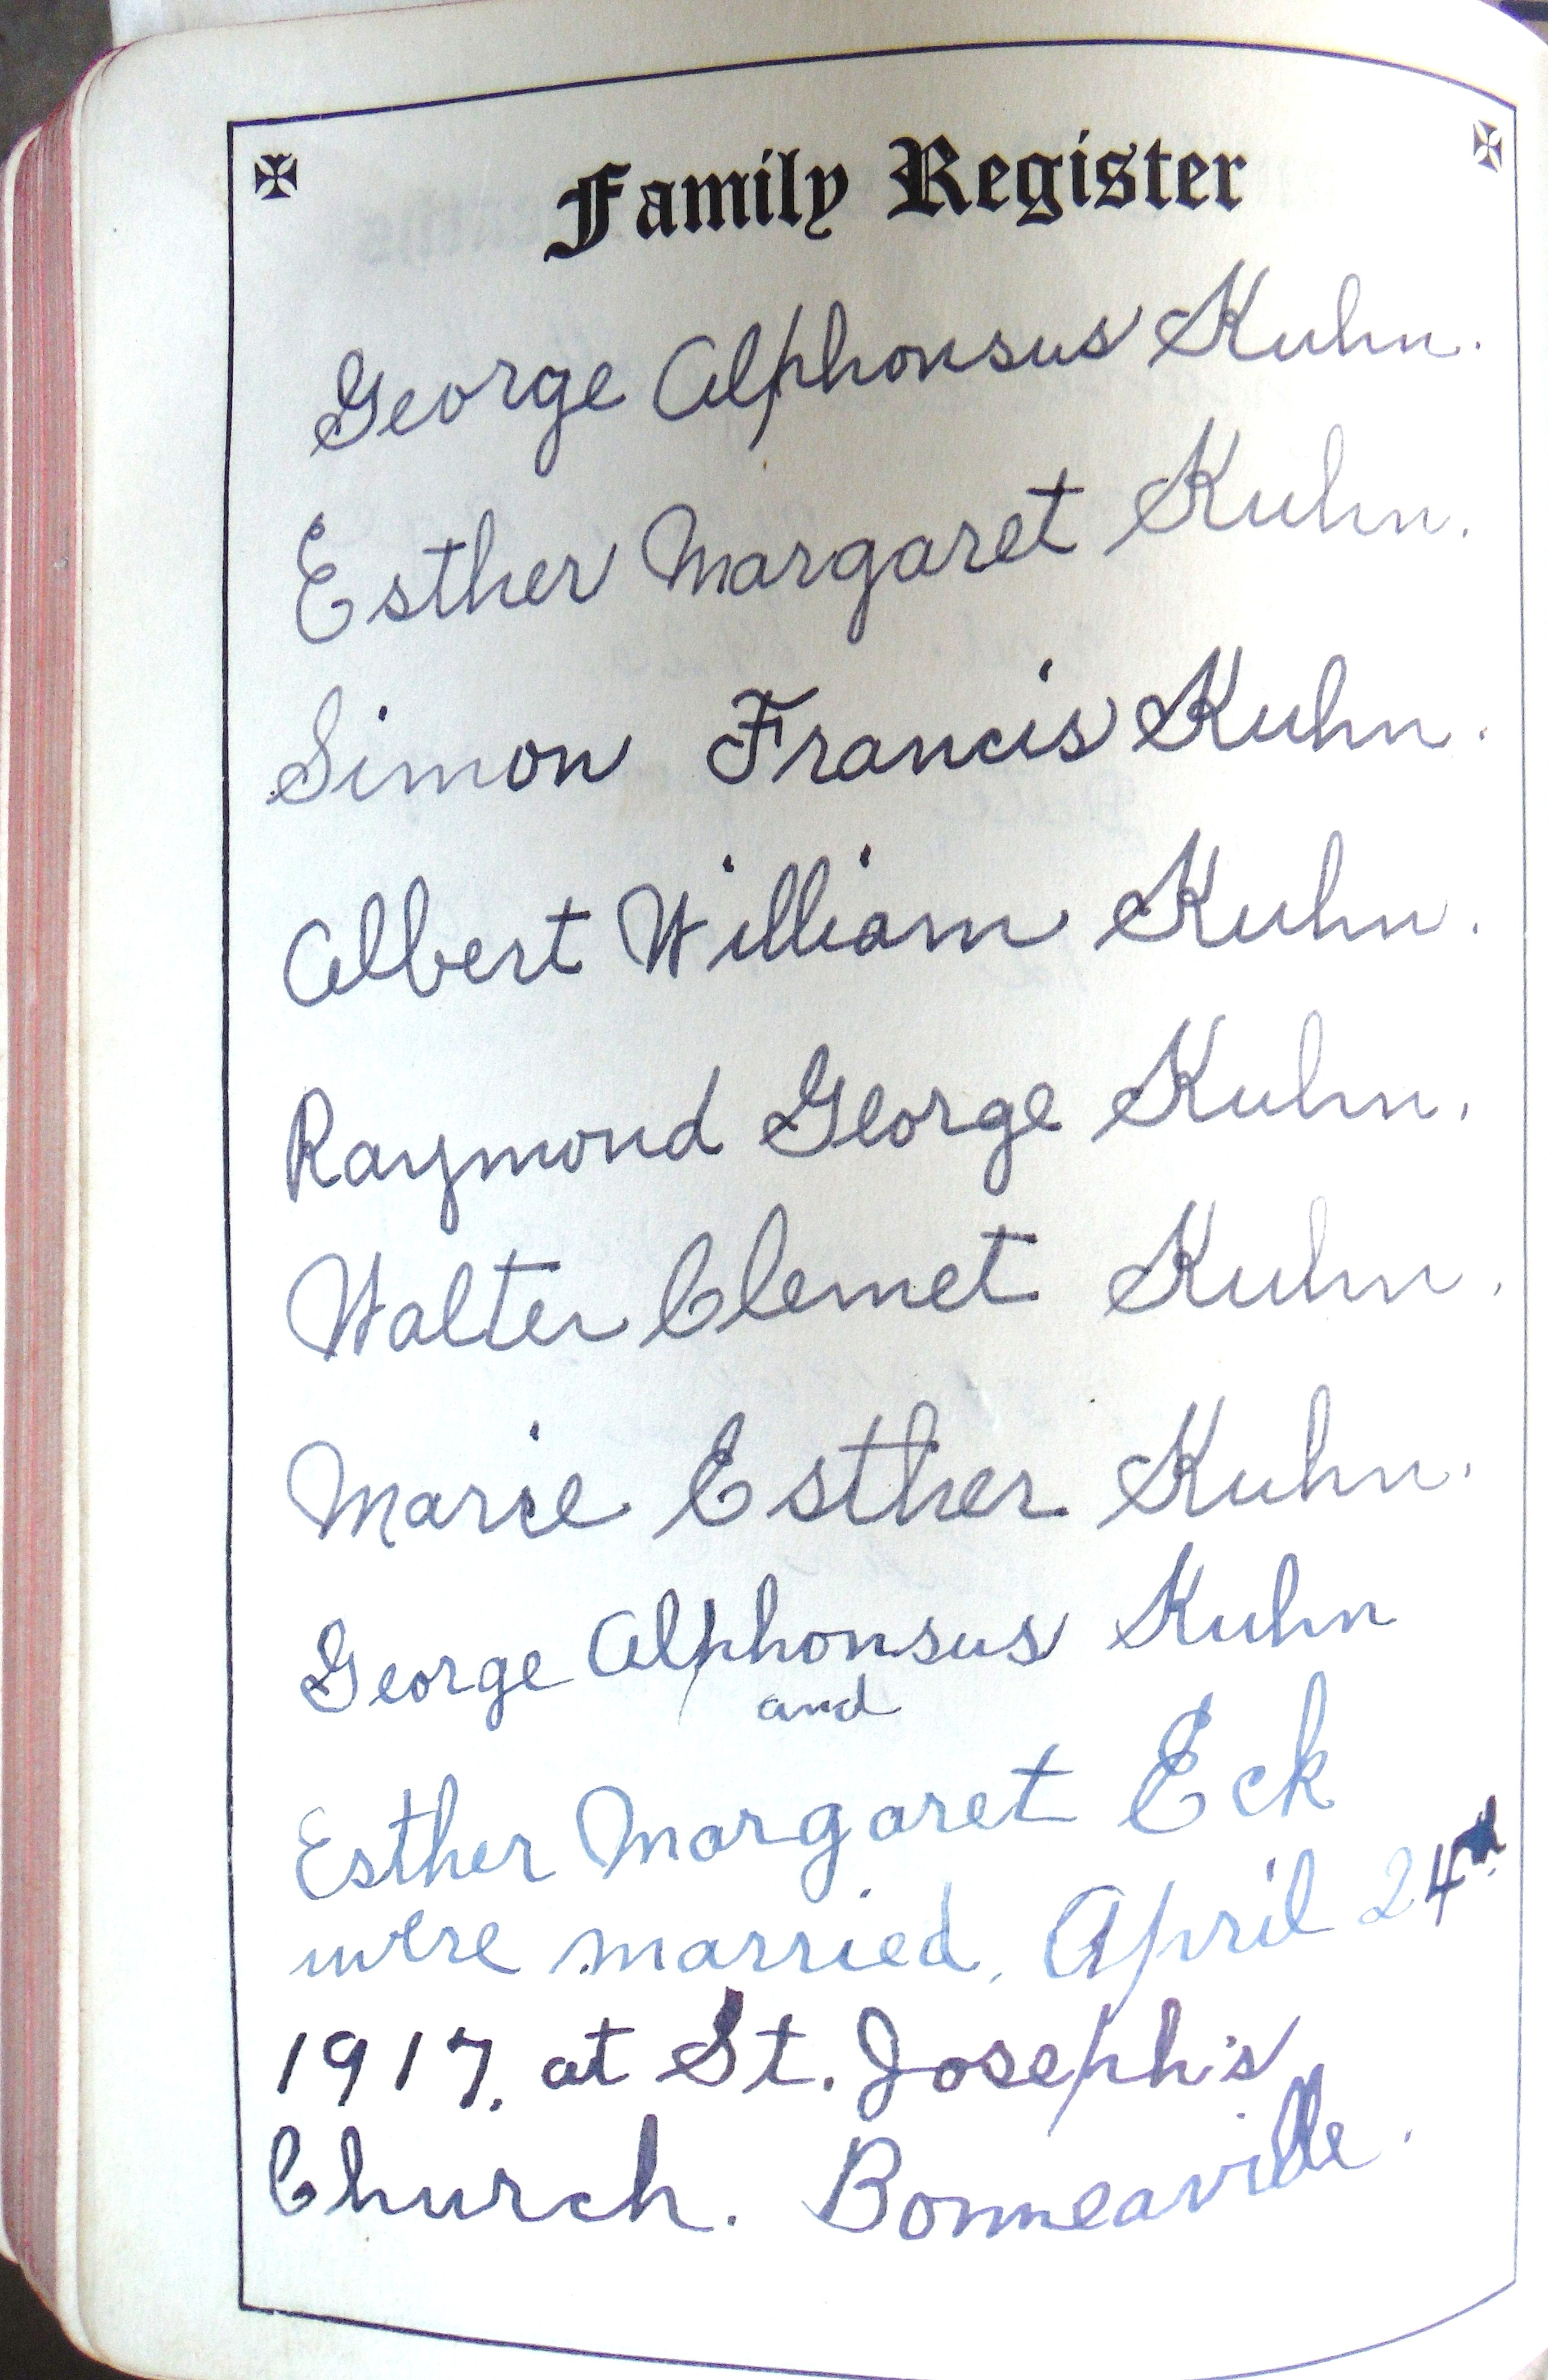 Family Register
George Alphonsus Kuhn.
Esther Margaret Kuhn.
Simon Francis Kuhn.
Albert William Kuhn.
Raymond George Kuhn.
Walter Clemet Kuhn.
Marie Esther Kuhn.
George Alphonsus Kuhn
and
Esther Margaret Eck
were married, April 24th
1917. at St. Joseph's
Church. Bonneaville.